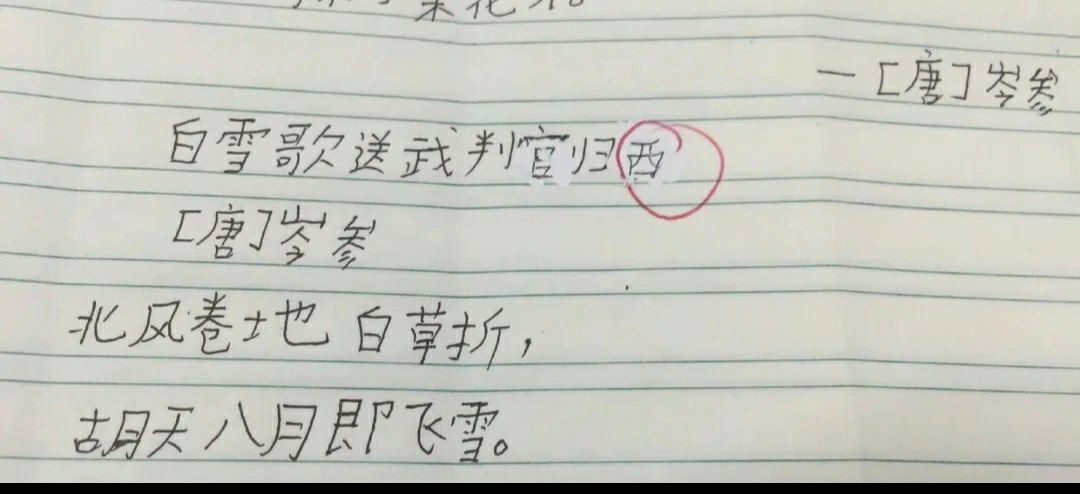 菜花
一[唐]岑参
白雪歌送武判官归西
[唐]岑参
北风卷土地白草折，
胡天八月即飞雪。